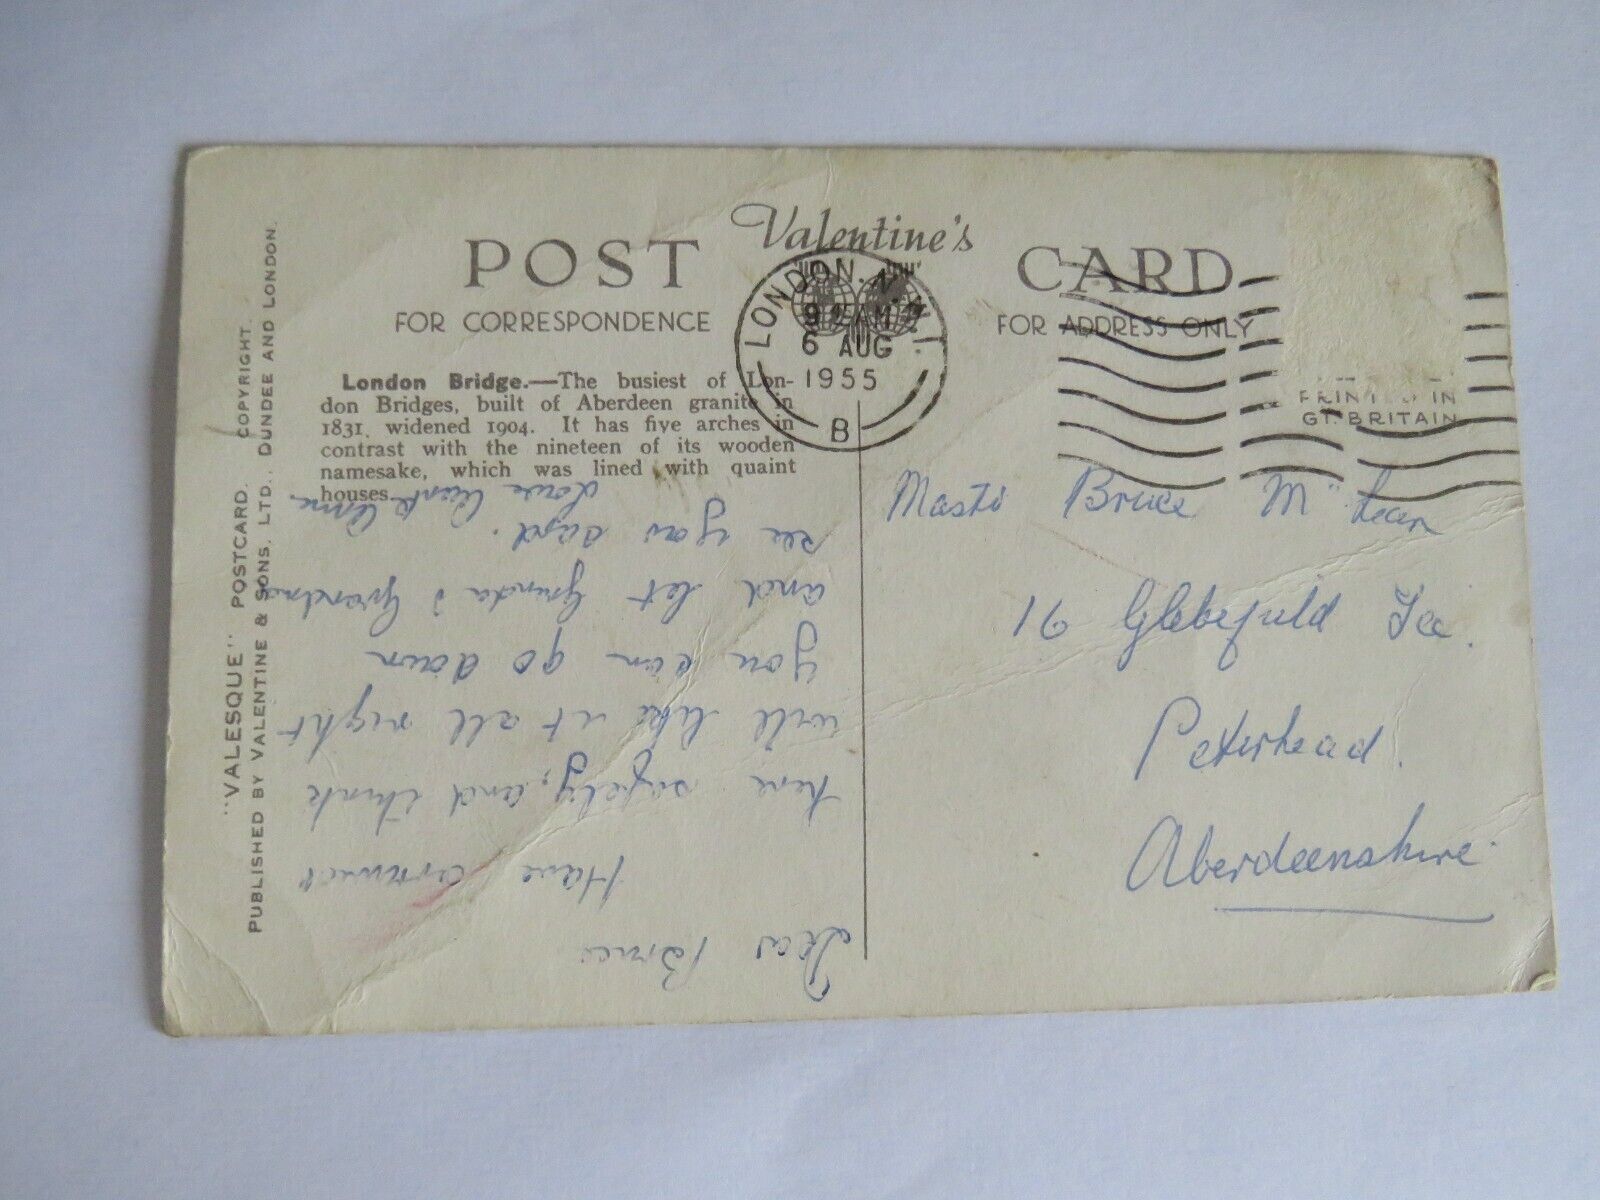 "VALESQUE" POSTCARD. COPYRIGHT.
PUBLISHED BY VALENTINE & SONS. LTD., DUNDEE AND LONDON.
Valentine's
POST CARD
FOR CORRESPONDENCE
FOR ADDRESS ONLY
LONDON. N.W.1.
9 15 AM
6 AUG
1955
B
PRINTED IN
GT. BRITAIN
London Bridge.—The busiest of Lon-
don Bridges, built of Aberdeen granite in
1831, widened 1904. It has five arches in
contrast with the nineteen of its wooden
namesake, which was lined with quaint
houses.
Dear Bruce
Have arrived
here safely, and think
will like it all right
you can go down
and let Granda & Grandma
see your card.
love Auntie Anna
Mastr Bruce Mc Lean
16 Glebefield Tce.
Peterhead.
Aberdeenshire.